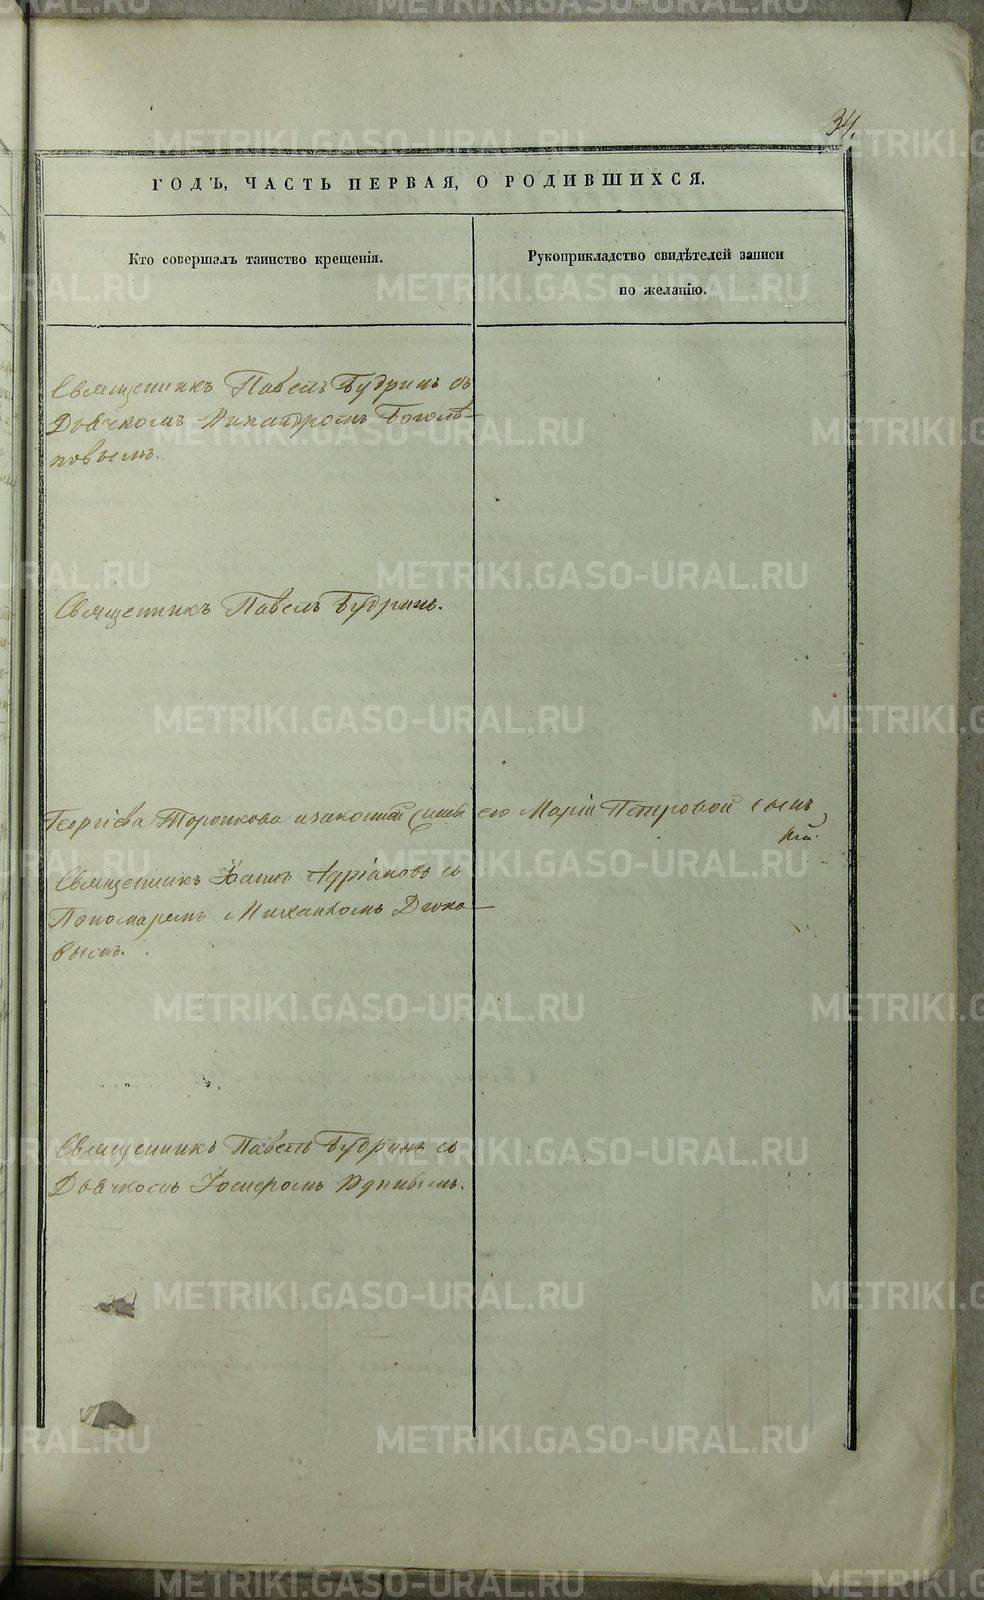 34.
ГОДЪ, ЧАСТЬ ПЕРВАЯ, О РОДИВШИХСЯ.
Кто совершалъ таинство крещенія.
Рукоприкладство свидѣтелей записи
по желанію.
Священникъ Павелъ Будринъ съ
Дьячкомъ Никандромъ Боголѣ-
повымъ.
Священникъ Павелъ Будринъ.
Георгіева Торопкова и законной жены его Маріи Петровой сынъ
Священникъ Іоаннъ Адріановъ съ
Пономаремъ Михаиломъ
вымъ.
Священникъ Павелъ Будринъ съ
Дьячкомъ
METRIKI.GASO-URAL.RU